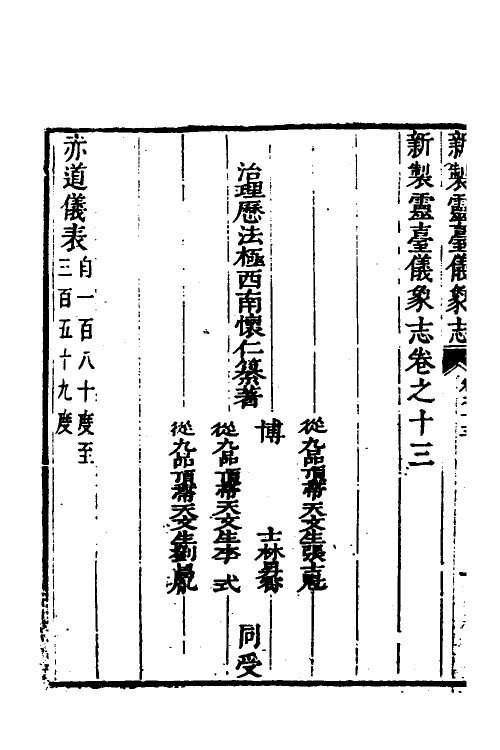 新製靈臺儀象志
新製靈臺儀象志卷之十三
治理歷法極西南懷仁纂著
從九品頂帶天文生張士魁
博士林昇
從九品頂帶天文生李式
從九品頂帶天文生劉
同受
赤道儀表
自一百八十度至
三百五十九度